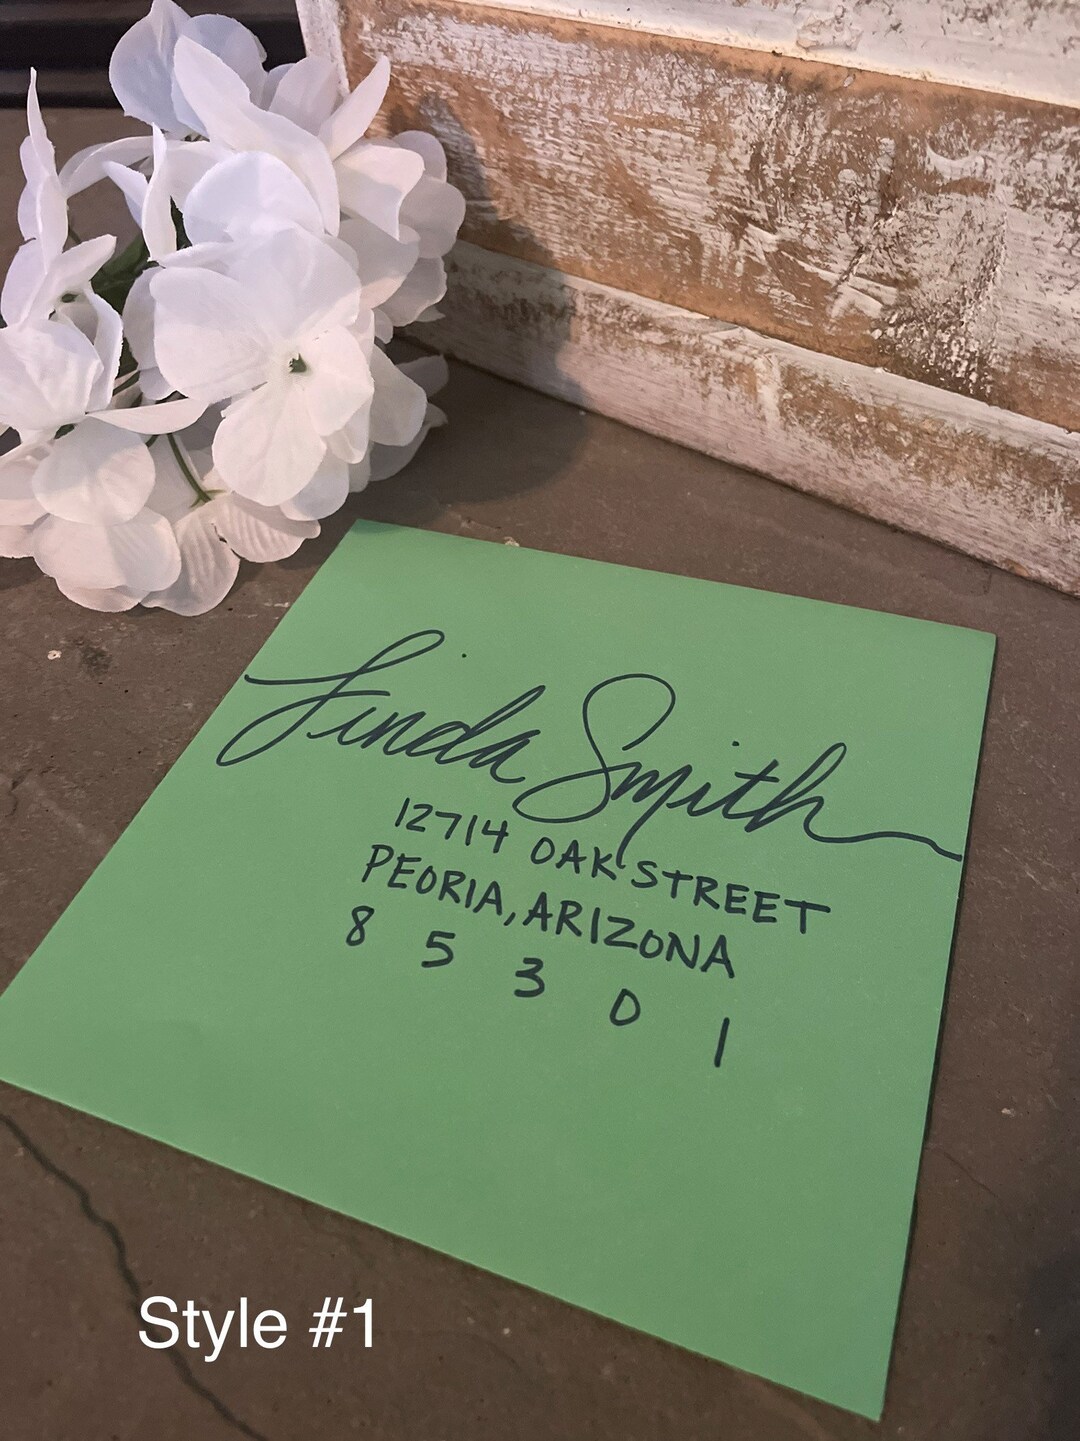 Linda Smith
12714 OAK STREET
PEORIA, ARIZONA
8 5 3 0 1
Style #1